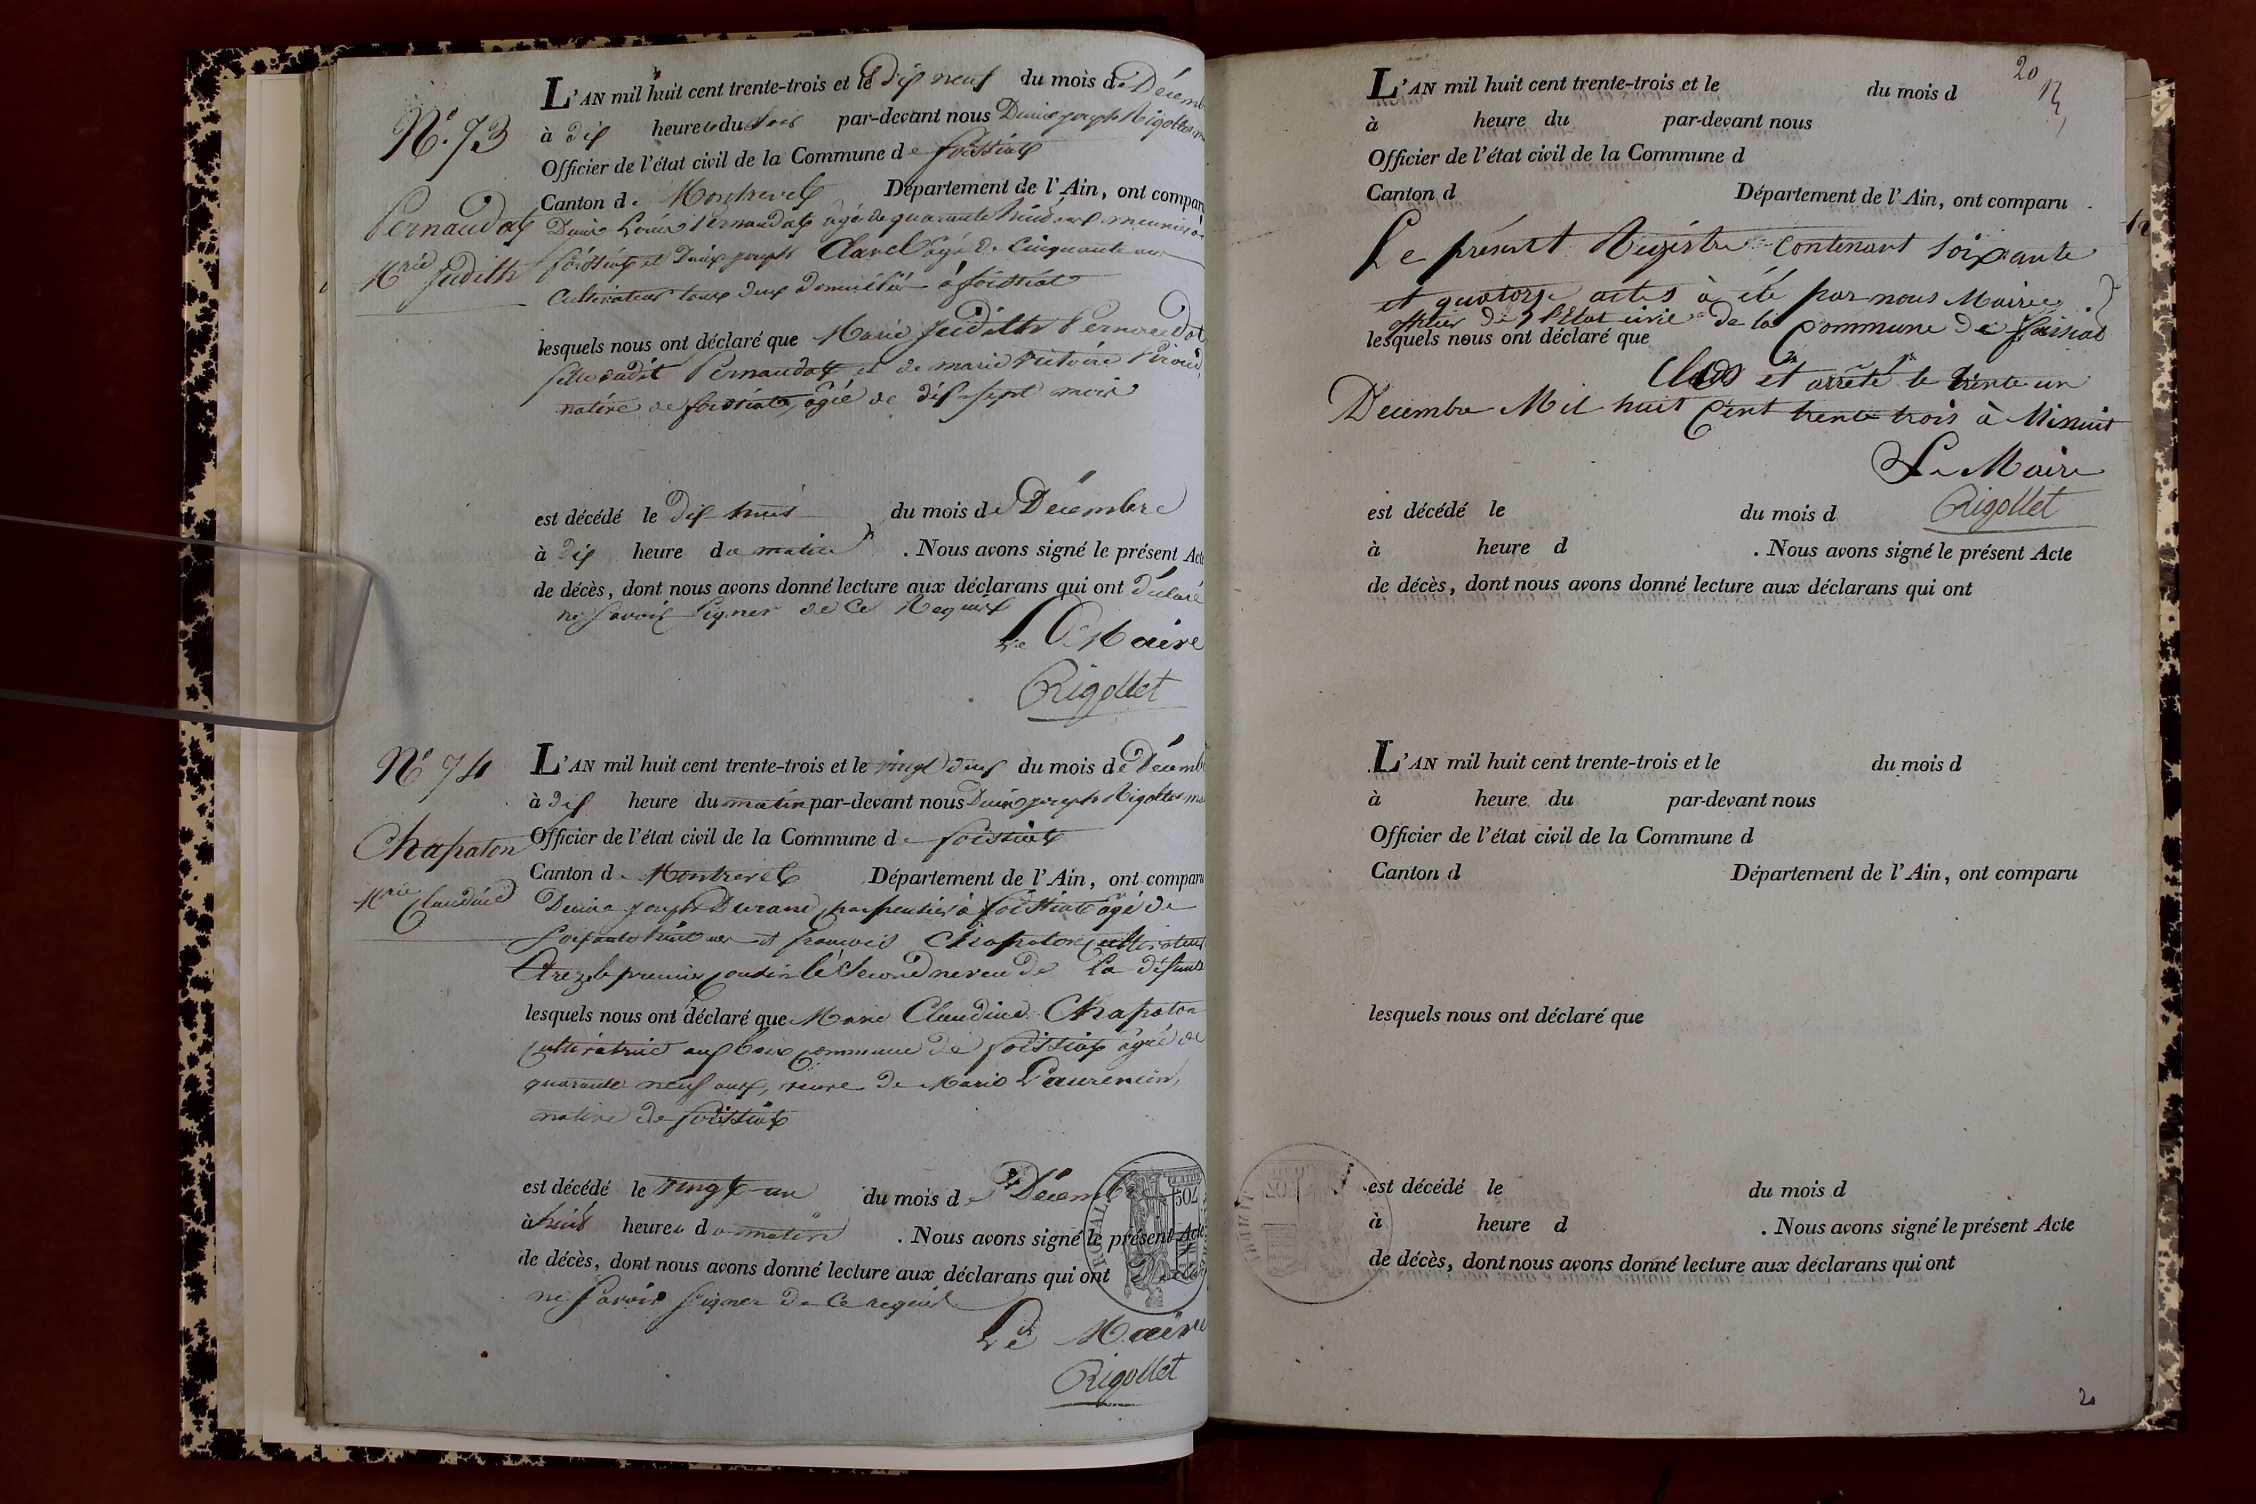 N.° 73
Pernaudat
Mrie Judith
L'AN mil huit cent trente-trois et le dix neuf du mois de Décemb
à dix heures du soir par-devant nous Denis joseph Rigollet
Officier de l'état civil de la Commune de foissiat
Canton de Montrevel Département de l'Ain, ont compar
Denis Louis Pernaudat agé de quarante huit ans meunier à
foissiat et Denis joseph Clavel agé de Cinquante ans
Cultivateur tous deux domiciliés à foissiat
lesquels nous ont déclaré que Marie Judith Pernaudat
fille dudit Pernaudat et de marie victoire
native de foissiat, agée de dix sept mois
est décédé le dix huit du mois de Décembre
à dix heure du matin . Nous avons signé le présent Acte
de décès, dont nous avons donné lecture aux déclarans qui ont déclaré
ne savoir signer de Ce Requis
Le Maire
Rigollet
N° 74
Chapaton
Mrie Claudine
L'AN mil huit cent trente-trois et le vingt deux du mois de Décemb
à dix heure du matin par-devant nous Denis joseph Rigollet
Officier de l'état civil de la Commune de foissiat
Canton de Montrevel Département de l'Ain, ont comparu
Denis joseph Durand charpentier à foissiat agé de
soixante huit ans et françois Chapaton cultivateur
le premier cousin le second neveu de la défunte
lesquels nous ont déclaré que Marie Claudine Chapaton
cultivatrice aux bois commune de foissiat agée de
quarante neuf ans, veuve de Marie Laurencin,
native de foissiat
est décédé le vingt un du mois de Décemb
à huit heures du matin . Nous avons signé le présent Acte
de décès, dont nous avons donné lecture aux déclarans qui ont
ne savoir signer de Ce requis
Le Maire
Rigollet
20
L'AN mil huit cent trente-trois et le du mois d
à heure du par-devant nous
Officier de l'état civil de la Commune d
Canton d Département de l'Ain, ont comparu
Le présent Régistre contenant soixante
et quatorze actes à été par nous Maire
officier de l'Etat civil de la Commune de foissiat
lesquels nous ont déclaré que
Clos et arrêté le trente un
Décembre Mil huit Cent trente trois à Minuit
Le Maire
Rigollet
est décédé le du mois d
à heure d . Nous avons signé le présent Acte
de décès, dont nous avons donné lecture aux déclarans qui ont
L'AN mil huit cent trente-trois et le du mois d
à heure du par-devant nous
Officier de l'état civil de la Commune d
Canton d Département de l'Ain, ont comparu
lesquels nous ont déclaré que
est décédé le du mois d
à heure d . Nous avons signé le présent Acte
de décès, dont nous avons donné lecture aux déclarans qui ont
20